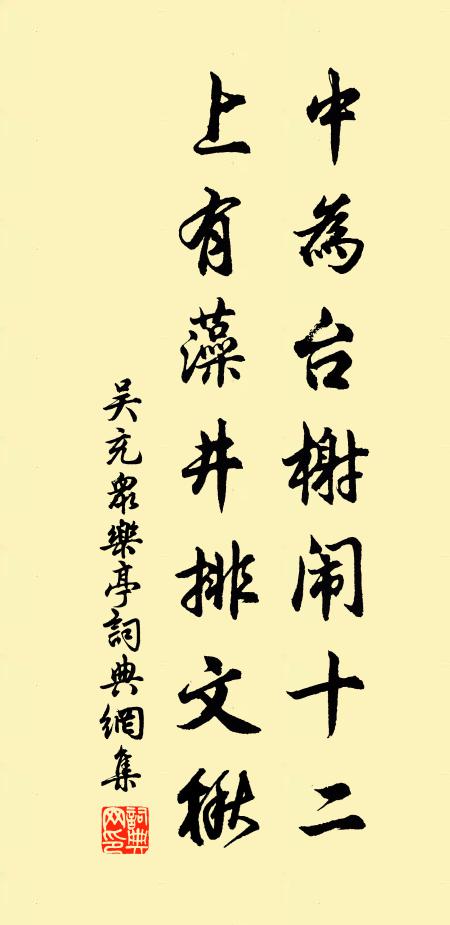 中為台榭闹十二
上有藻井排文楸
吴充眾樂亭詞典網集
詞典网印